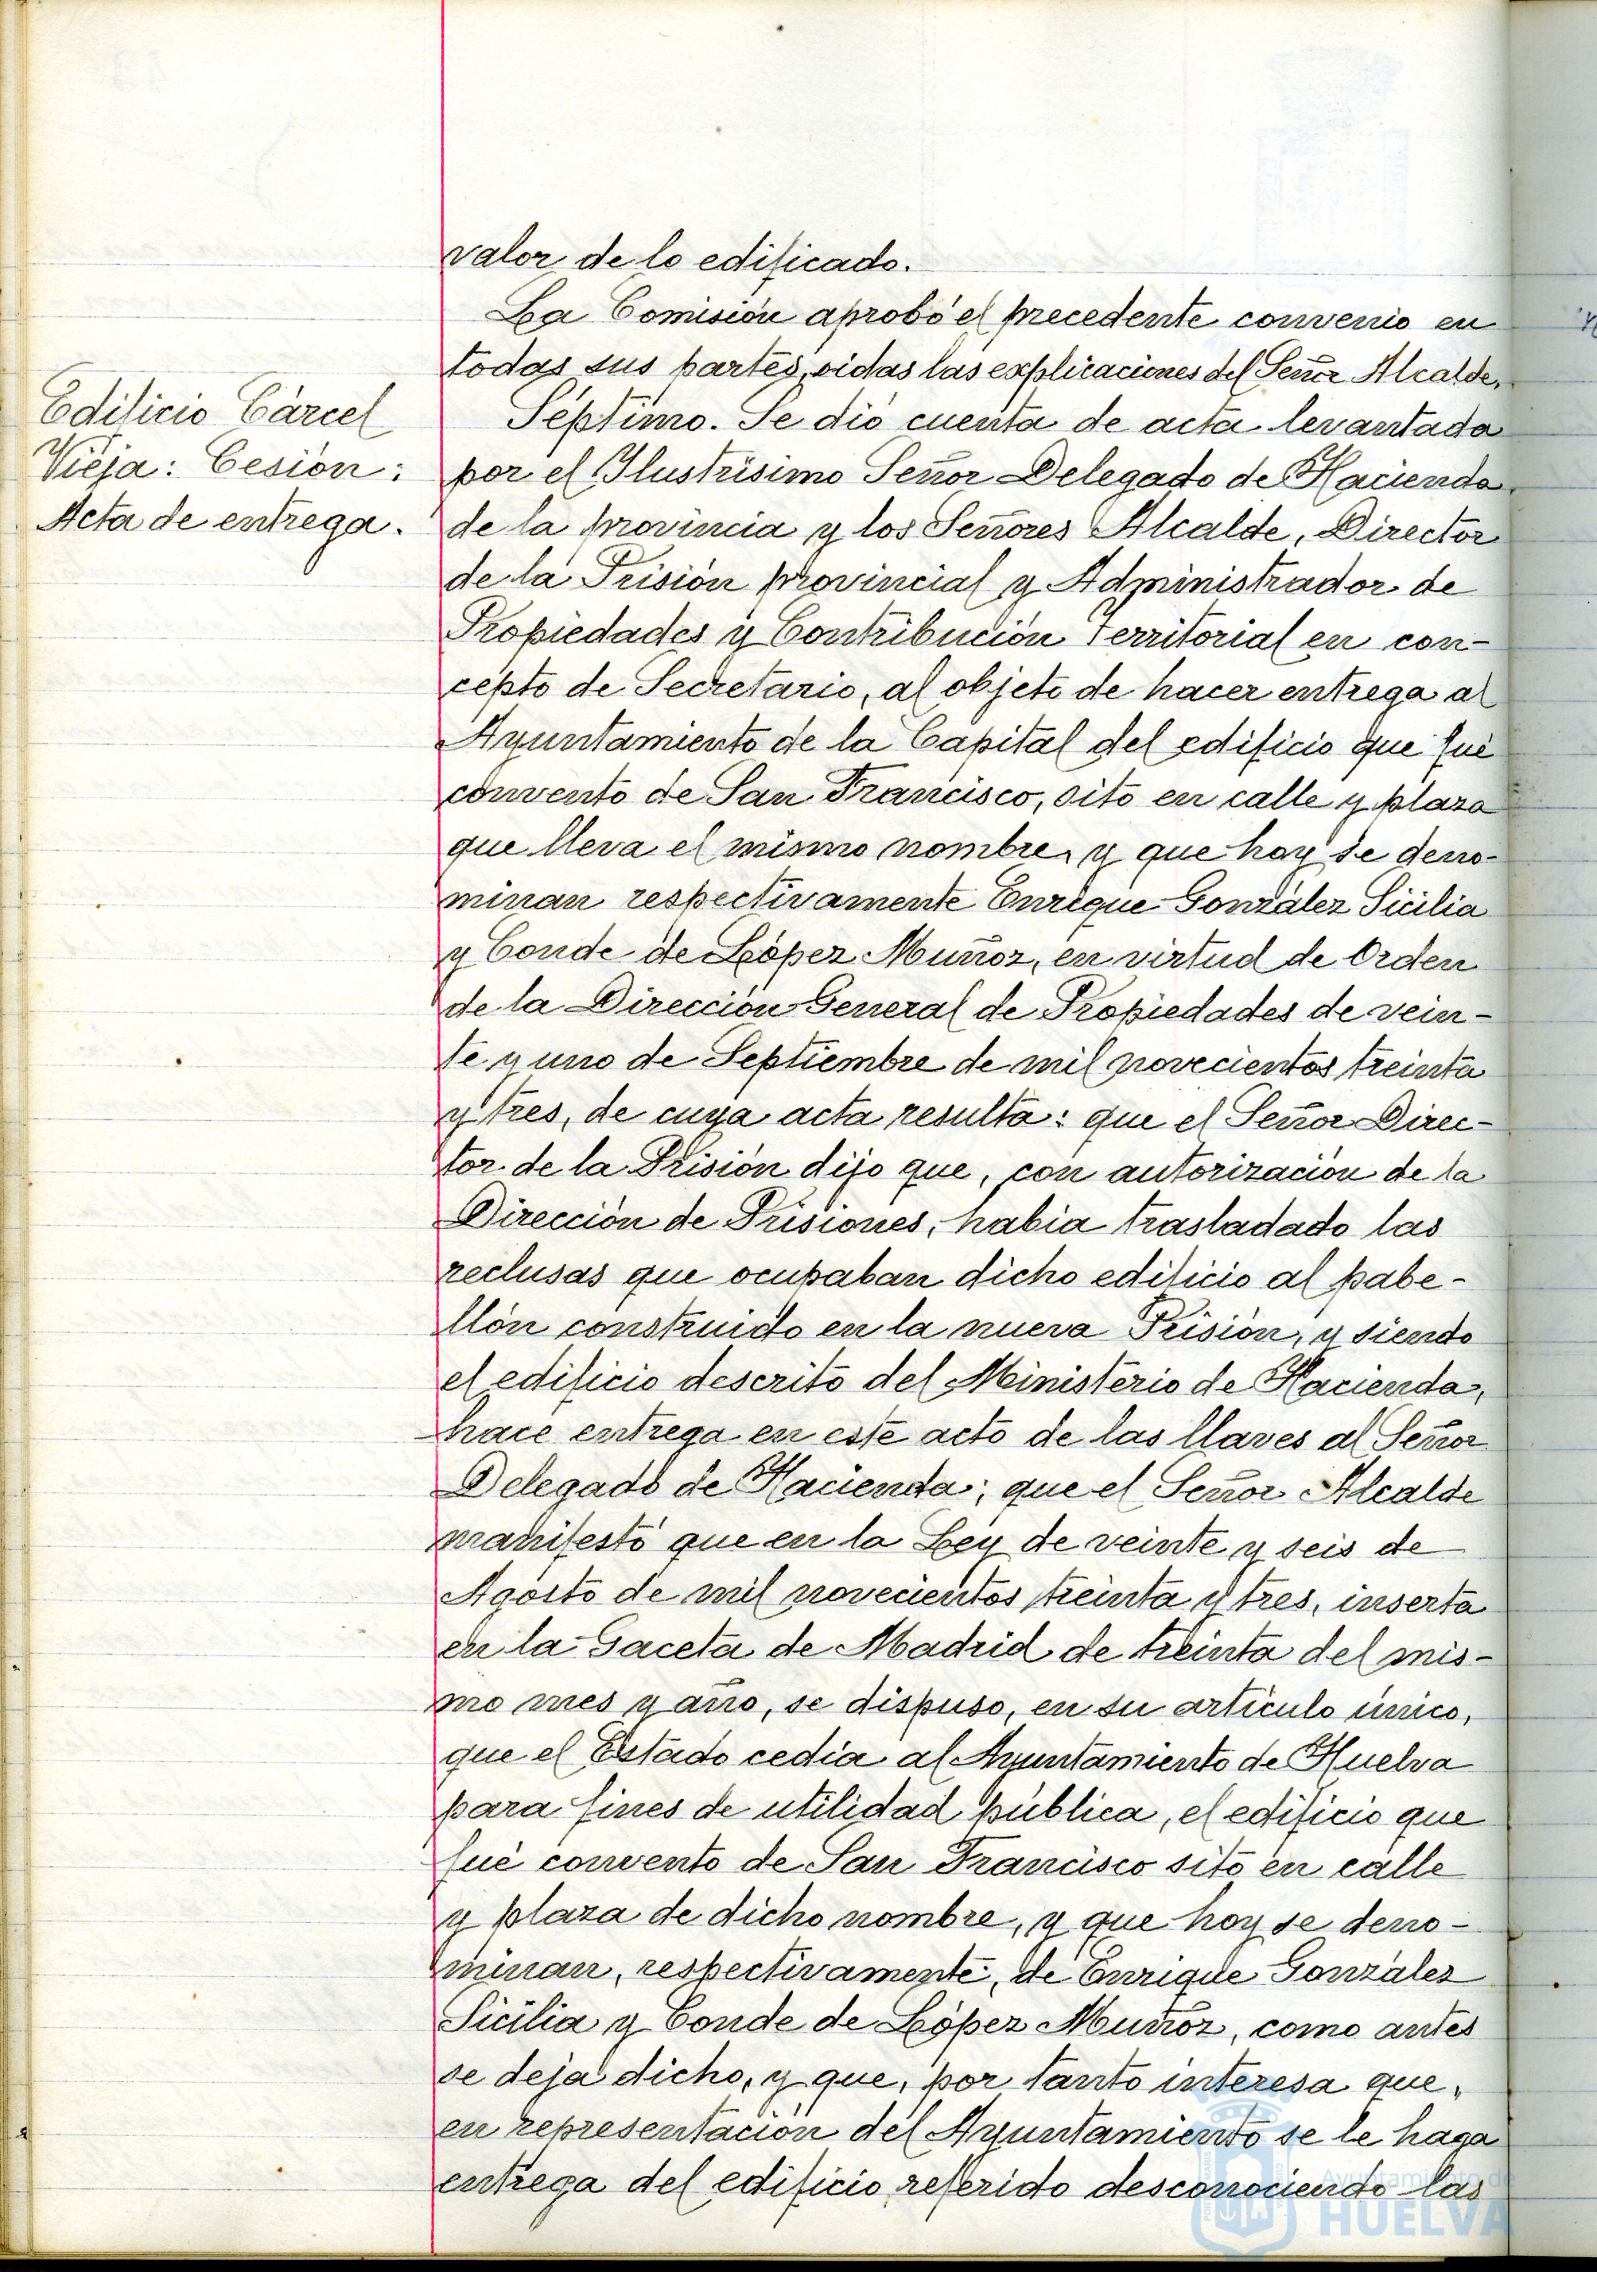 valor de lo edificado.
La Comisión aprobó el precedente convenio en
todas sus partes, oidas las explicaciones del Señor Alcalde.
Edificio Cárcel
Vieja: Cesión:
Acta de entrega.
Séptimo. Se dió cuenta de acta levantada
por el Ilustrísimo Señor Delegado de Hacienda
de la provincia y los Señores Alcalde, Director
de la Prisión provincial y Administrador de
Propiedades y Contribución Territorial en con-
cepto de Secretario, al objeto de hacer entrega al
Ayuntamiento de la Capital del edificio que fué
convento de San Francisco, sito en calle y plaza
que lleva el mismo nombre, y que hoy se deno-
minan respectivamente Enrique González Sicilia
y Conde de López Muñoz, en virtud de Orden
de la Dirección General de Propiedades de vein-
te y uno de Septiembre de mil novecientos treinta
y tres, de cuya acta resulta: que el Señor Direc-
tor de la Prisión dijo que, con autorización de la
Dirección de Prisiones, habia trasladado las
reclusas que ocupaban dicho edificio al pabe-
llón construido en la nueva Prisión, y siendo
el edificio descrito del Ministerio de Hacienda,
hace entrega en este acto de las llaves al Señor
Delegado de Hacienda; que el Señor Alcalde
manifestó que en la Ley de veinte y seis de
Agosto de mil novecientos treinta y tres, inserta
en la Gaceta de Madrid de treinta del mis-
mo mes y año, se dispuso, en su artículo único,
que el Estado cedía al Ayuntamiento de Huelva
para fines de utilidad pública, el edificio que
fué convento de San Francisco sito en calle
y plaza de dicho nombre, y que hoy se deno-
minan, respectivamente, de Enrique González
Sicilia y Conde de López Muñoz, como antes
se deja dicho, y que, por tanto interesa que,
en representación del Ayuntamiento se le haga
entrega del edificio referido desconociendo las
Ayuntamiento de
HUELVA